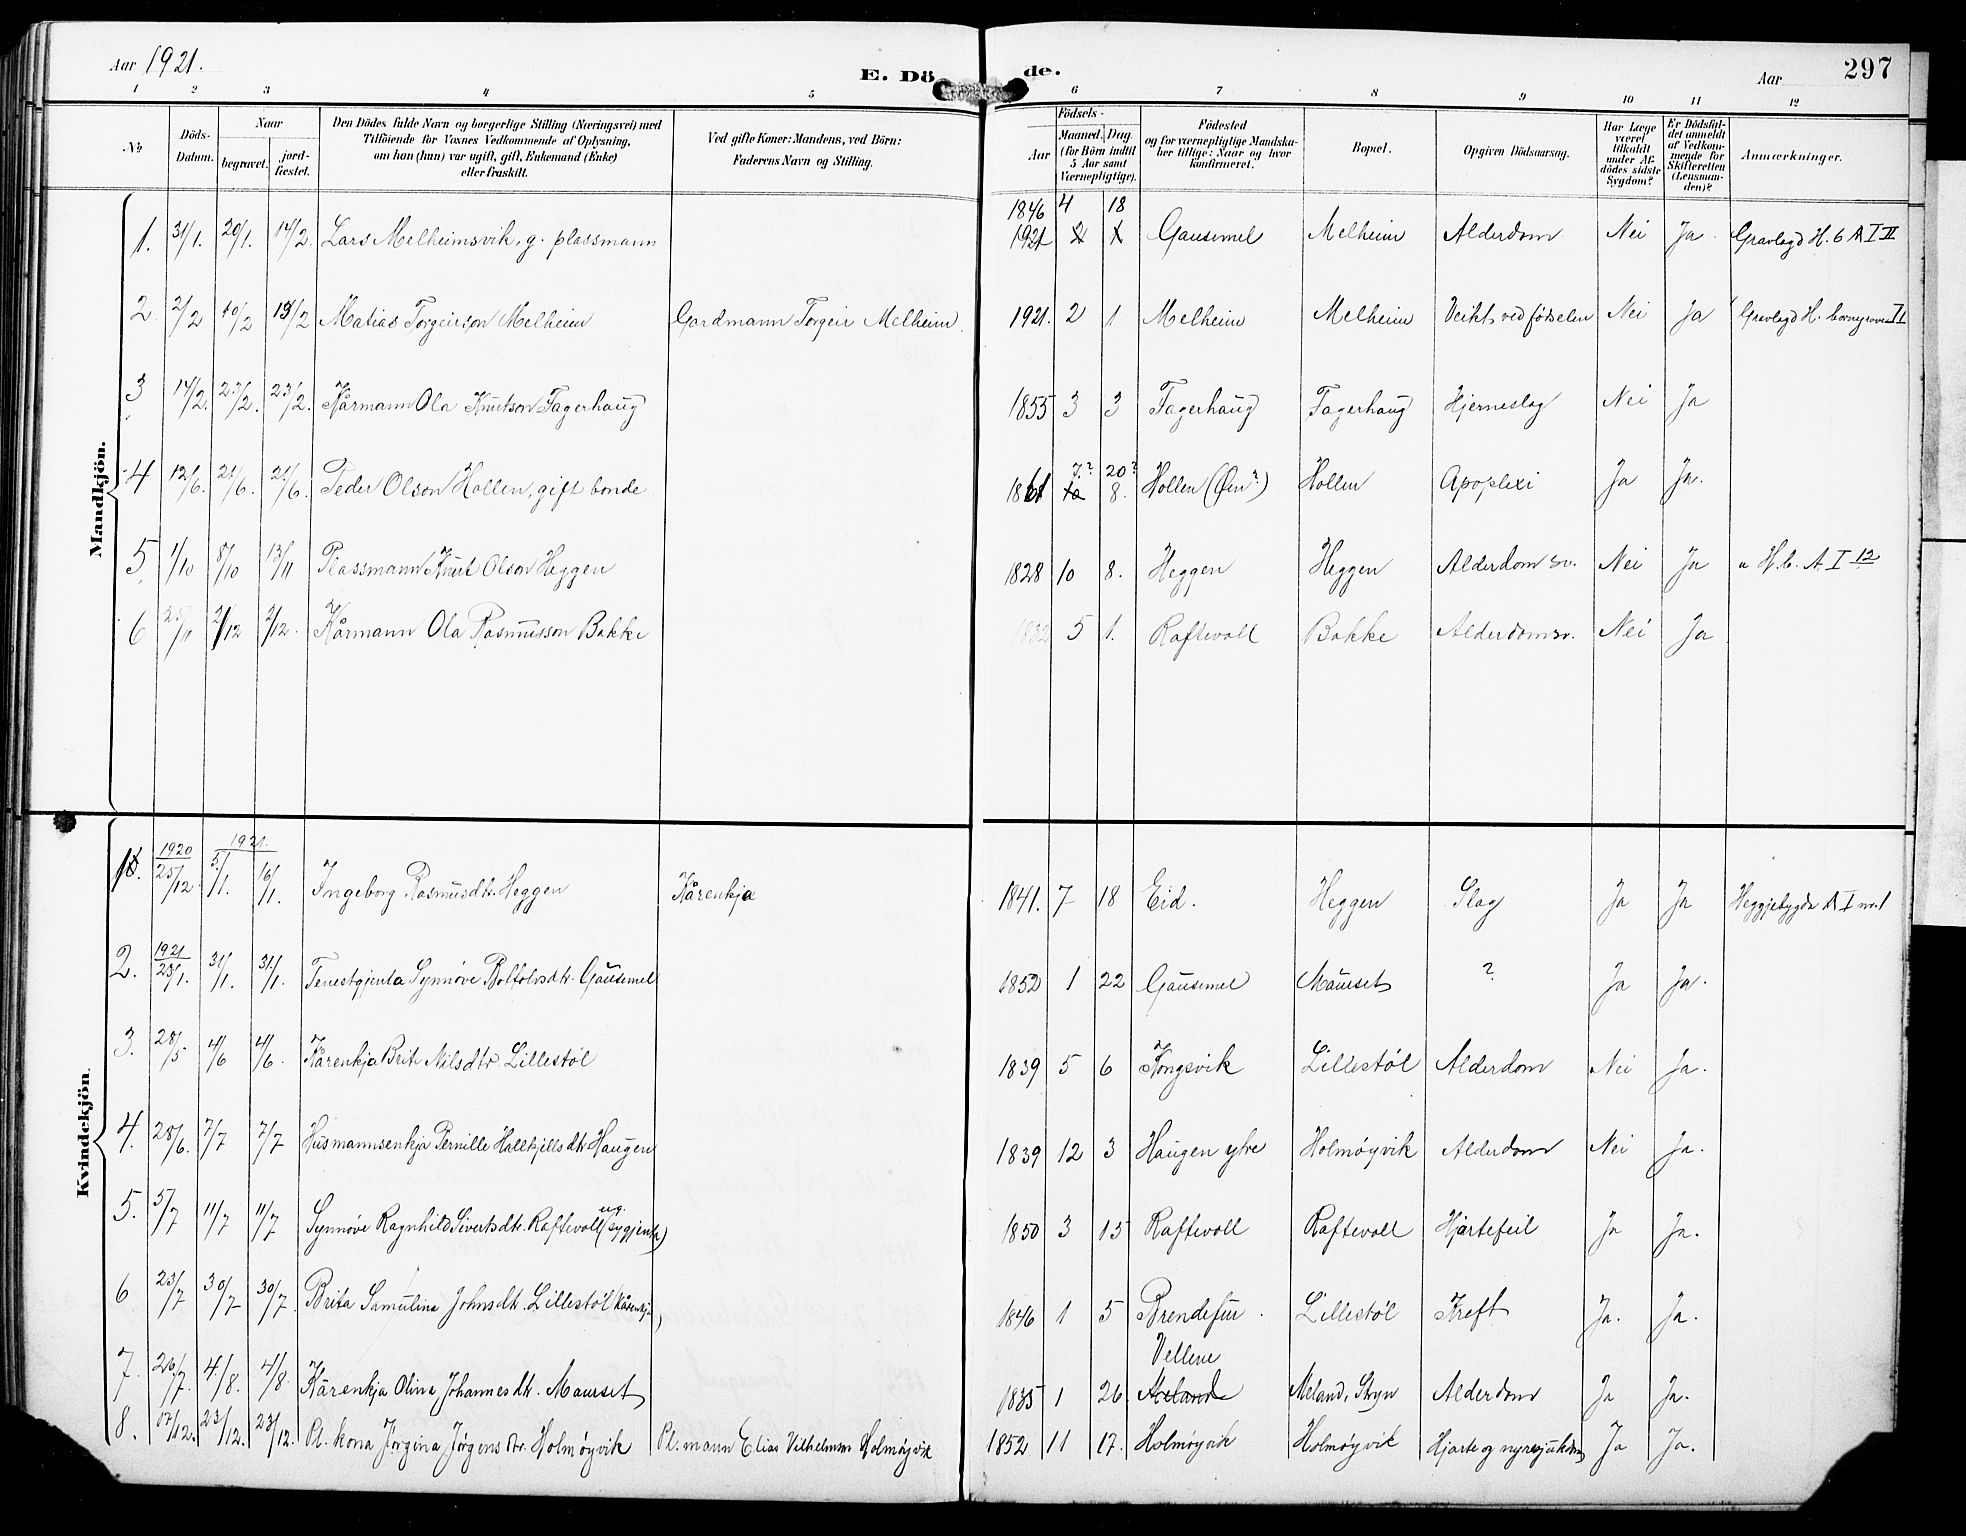 Aar 1921.
E. Dö de.
Aar
297
1 2 3 4 5 6 7 8 9 10 11 12
No
Döds-Datum.
Naar
begravet.
jord-fæstet.
Den Dödes fulde Navn og borgerlige Stilling (Næringsvei) med
Tilföiende for Voxnes Vedkommende af Oplysning,
om han (hun) var ugift, gift, Enkemand (Enke)
eller fraskilt.
Ved gifte Koner: Mandens, ved Börn:
Faderens Navn og Stilling.
Födsels-
Aar
Maaned.
Dag.
(for Börn indtil
5 Aar samt
Værnepligtige).
Födested
og for værnepligtige Mandska-
ber tillige: Naar og hvor
konfirmeret.
Bopæl.
Opgiven Dödsaarsag.
Har Læge
været
tilkaldt
under Af-
dödes sidste
Sygdom?
Er Dödsfal-
det anmeldt
af Vedkom-
mende for
Skifteretten
(Lensman-
den)?
Anmærkninger.
Mandkjön.
1. 31/1. 20/1. 14/2. Lars Melheimsvik, g. plassmann 1846 4 18 1921 Gausemel Melheim Alderdom Nei Ja Gravlagd H. b A I II
2 2/2 10/2 13/2 Matias Torgeirson Melheim Gardmann Torgeir Melheim 1921. 2 1 Melheim Melheim Veikt ved fødselen Nei Ja Gravlagd H.
3 14/2. 23/2. 23/2. Kårmann Ola Knutson Fagerhaug 1855 3 3 Fagerhaug Fagerhaug Hjerneslag Nei Ja
4 12/6. 21/6. 21/6. Peder Olson Hollen, gift bonde 1861 7? 20? 8. Hollen (Øen?) Hollen Apoplexi Ja Ja.
5 1/10 8/10 13/11 Plassmann Knut Olson Heggen 1828 10 8. Heggen Heggen Alderdom sv. Nei Ja " H. b. A I 12
6 25/11 2/12 2/12. Kårmann Ola Rasmusson Bakke 1832 5 1. Raftevoll Bakke Alderdomsv. Nei Ja
Kvindekjön.
1. 1920 25/12. 1921. 5/1. 16/1. Ingeborg Rasmusdtr. Heggen Kårenkja 1841. 7 18 Eid. Heggen Slag Ja Ja Heggjebygda A I nr. 1
2. 1921 23/1. 31/1. 31/1. Tenestgjenta Synnøve Botfolvsdtr. Gausemel 1852 1 22 Gausemel Maurset ? Ja Ja.
3. 28/5. 4/6 4/6. Kårenkja Brite Nilsdtr. Lillestøl 1839 5 6 Kongsvik Lillestøl Alderdom Nei Ja.
4. 28/6. 7/7 7/7 Husmannsenkja Pernille Hallkjellsdtr Haugen 1839 12 3 Haugen ytre Holmøyvik Alderdom Nei Ja.
5. 5/7 11/7 11/7 Synnøve Ragnhild Sivertsdtr. Raftevoll (ug. sygjenta) 1850 3 15 Raftevoll Raftevoll Hjartefeil Ja Ja.
6 23/7 30/7 30/7. Brita Samulina Johnsdtr. Lillestøl (kårenkja) 1846 1 5 Brendefur Lillestøl Kreft Ja. Ja.
7. 26/7. 4/8. 4/8 Kårenkja Olina Johannesdtr. Maurset 1835 1 26 Vellene Meland Meland, Stryn Alderdom Ja Ja.
8. 17/12. 23/12. 23/12. Pl. kona Jørgina Jørgensdtr. Holmøyvik Pl. mann Elias Vilhelmson Holmøyvik 1852 11 17. Holmøyvik Holmøyvik Hjarte og nyresjukdom Ja Ja.